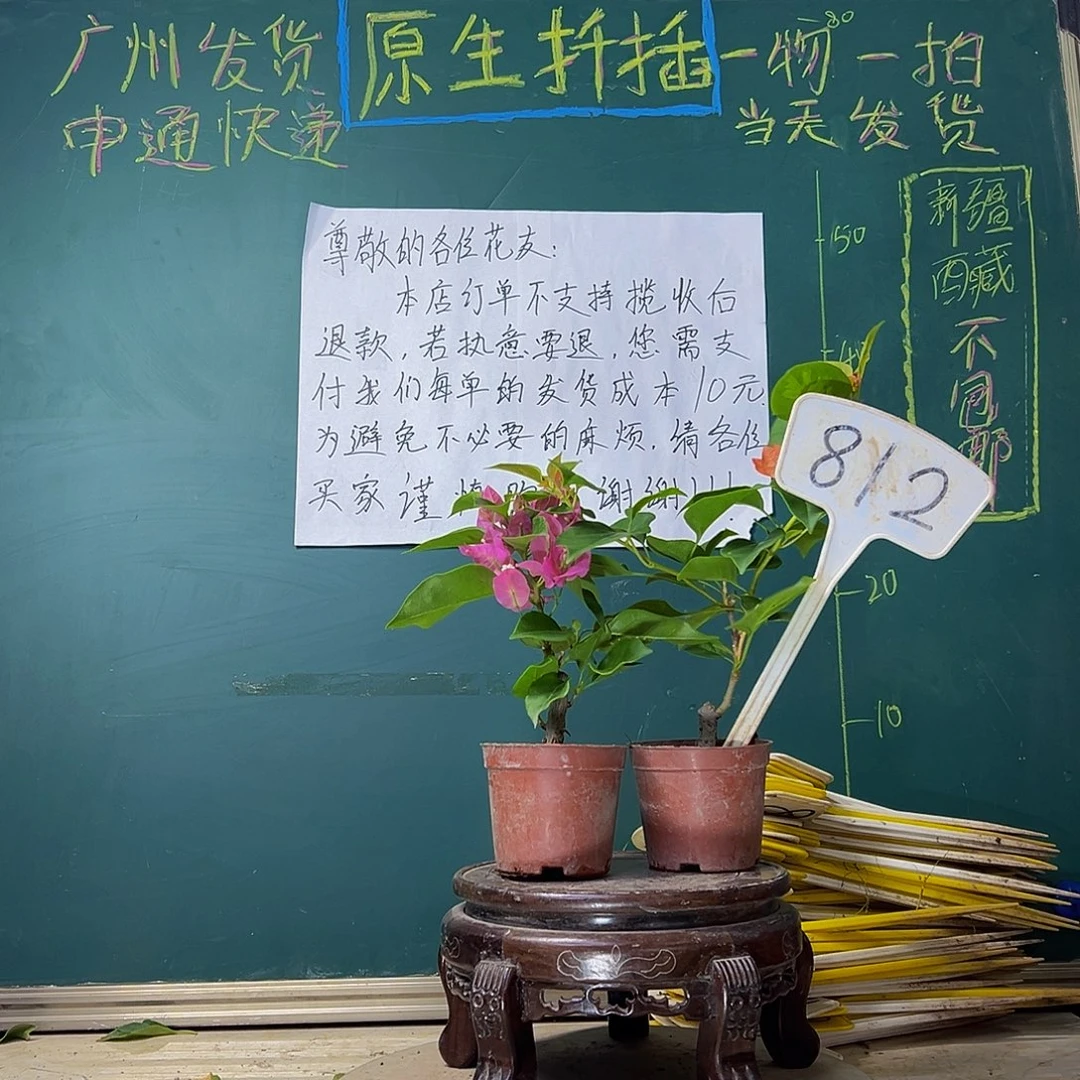 广州发货
申通快递
原生扦插
一物一拍
当天发货
80
50
20
10
新疆
西藏
不
包
邮
尊敬的各位花友:
本店订单不支持揽收后
退款,若执意要退,您需支
付我们每单的发货成本10元.
为避免不必要的麻烦,请各位
买家谨慎 谢谢!!!
812